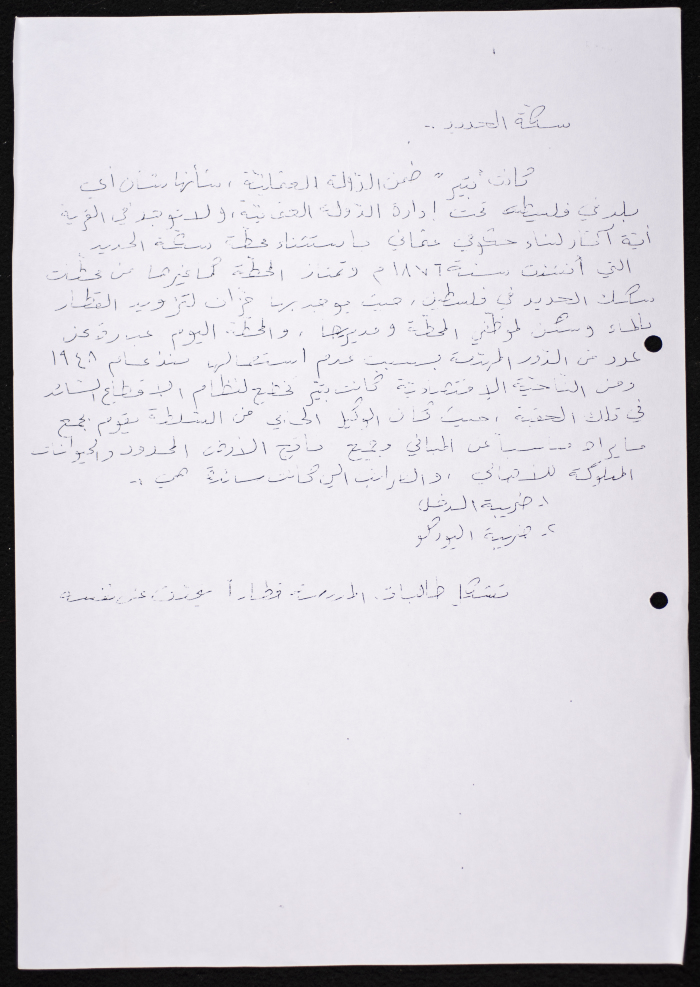 سكة الحديد :-
كانت "بتير" ضمن الدولة العثمانية، شأنها شأن أي
بلد في فلسطين تحت إدارة الدولة العثمانية، ولا توجد في القرية
أية آثار لبناء حكومي عثماني باستثناء محطة سكة الحديد
التي أنشئت سنة ١٨٧٦م وتمتاز المحطة كما غيرها من محطات
سكك الحديد في فلسطين، حيث يوجد بها خزان لتزويد القطار
بالماء وسكن لموظفي المحطة ومديرها، والمحطة اليوم عبارة عن
عدد من الدور المهدمة بسبب عدم استعمالها منذ عام ١٩٤٨
ومن الناحية الاقتصادية كانت بتير تخضع لنظام الإقطاع السائد
في تلك الحقبة، حيث كان الوكيل من السلطة يقوم بجمع
ما يراه مناسباً عن المباني وجميع ناتج الأرض المحدود والحيوانات
المملوكة للأهالي، والضرائب التي كانت سائدة هي :-
١- ضريبة الدخل
٢- ضريبة الويركو
طالبات المدرسة قطاراً عن نفسه